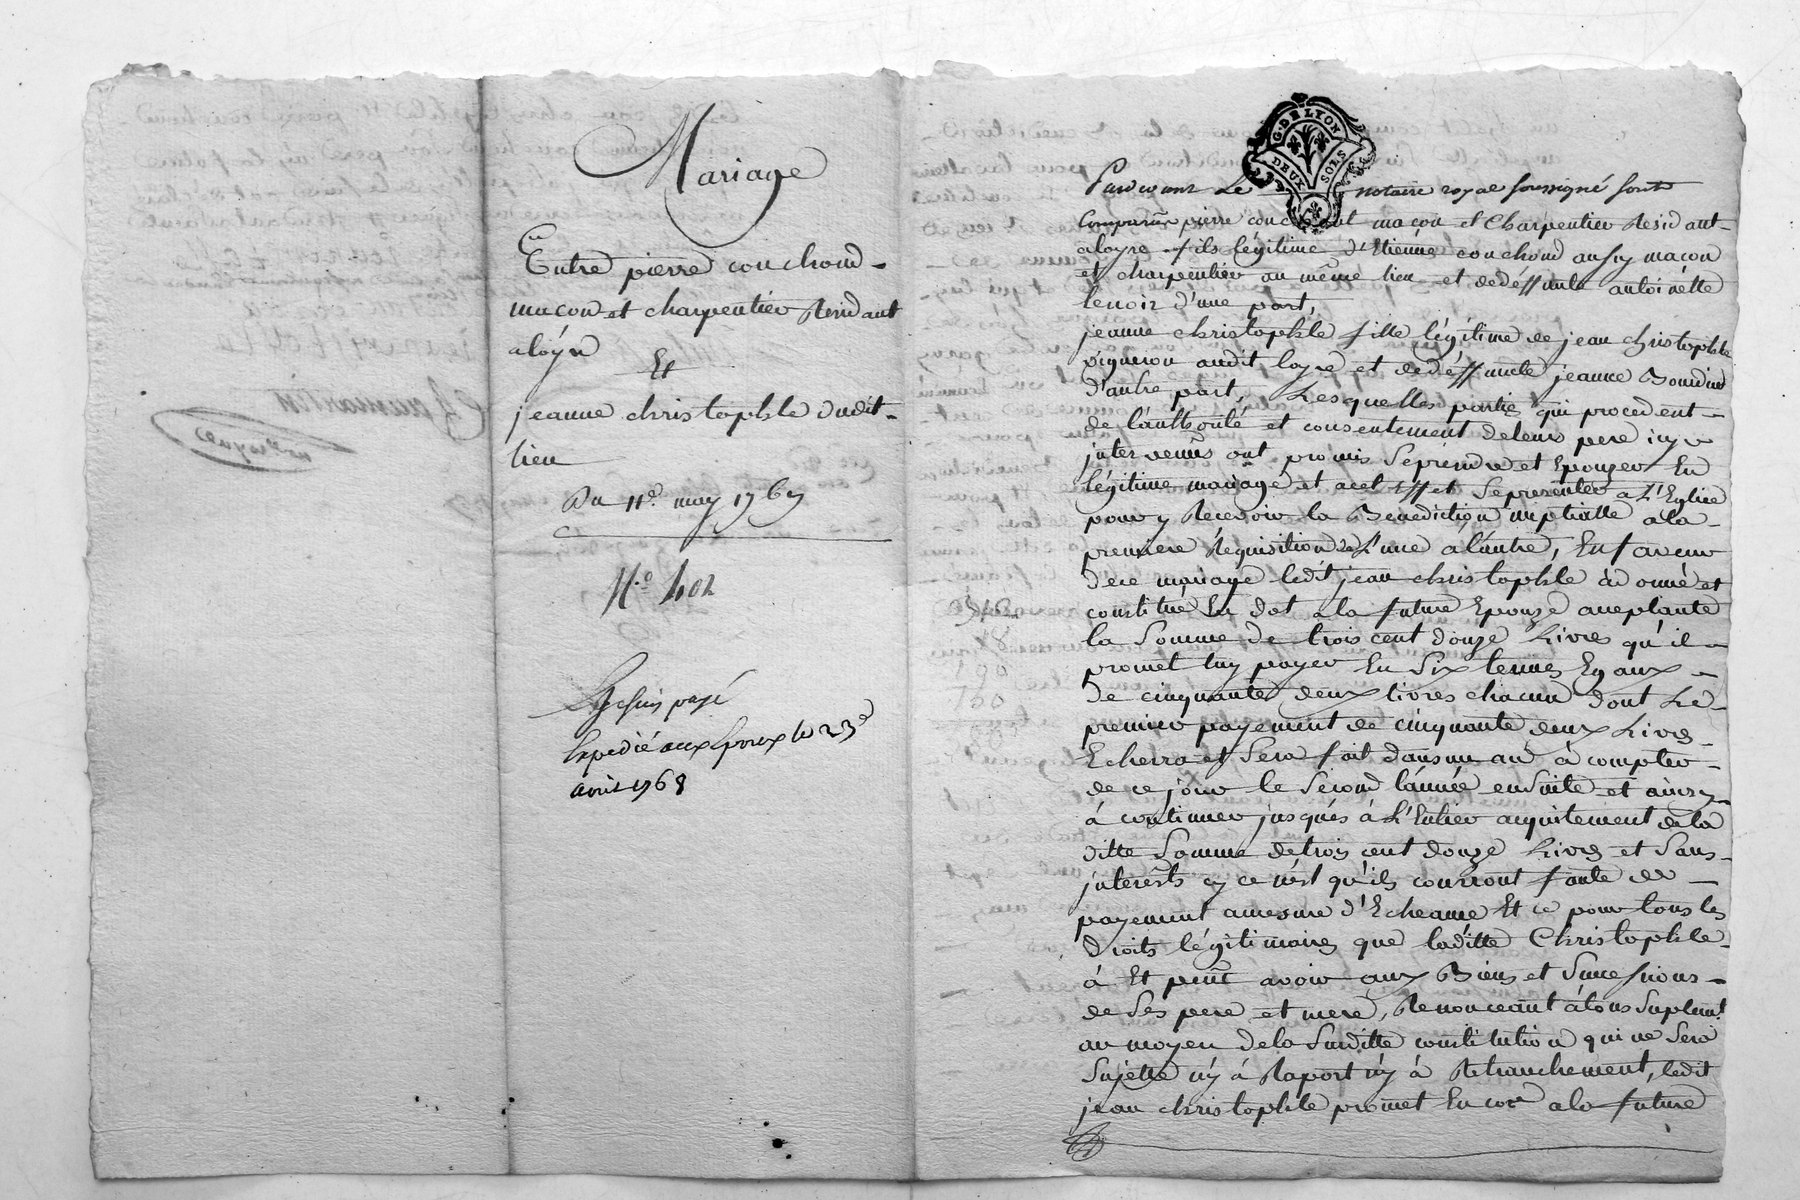 Mariage
Entre pierre couchoud
macon et charpentier Residant
a loyre
Et
jeanne christophle dudit
lieu
Du 11e. may 1767
N.o 402
payé
Expedié aux Epoux le 23e
avril 1768
G. DE LYON
DEUX SOLS
Pardevant Le notaire royal soussigné sont
Comparus pierre couchoud macon et Charpentier Residant
a loyre fils légitime d'Etienne couchoud aussy macon
et charpentier au même lieu et de deffunte antoinette
lenoir d'une part,
jeanne christophle fille légitime de jean christophle
vigneron audit loyre et de déffunte jeanne Bourdin
d'autre part, Lesquelles partie qui procedent
de l'authorité et consentement de leurs pere icy
intervenus ont promis Se prendre et Epouzer En
légitime mariage et a cet Effet Se presenter a L'Eglise
pour y Recevoir la Benediction nuptialle a la
premiere Réquisition de L'une a l'autre, En faveur
de ce mariage ledit jean christophle à donné et
constitué En dot a la future Epouze acceptante
la Somme de trois cent douze Livres qu'il
promet luy payer En Six termes Egaux
de cinquante deux livres chacun dont Le
premier payement de cinquante deux Livres
Echerra et Sera fait dans un an à compter
de ce jour le Second l'année ensuite et ainsy
à continuer jusqués à L'Entier acquitement de la
ditte Somme de trois cent douze Livres et Sans
jnterests cy ce n'est qu'ils courront faute de
payement a mesure d'Echeance Et ce pour tous les
Droits légitimaires que laditte Christophle
à Et peut avoir aux Biens et Successions
de Ses pere et mere, Renonceant à tous Suplemt
au moyen de la Susditte constitution qui ne Sera
Sujette n'y à Raport n'y à Retranchement, ledit
jean christophle promet Encore a la future